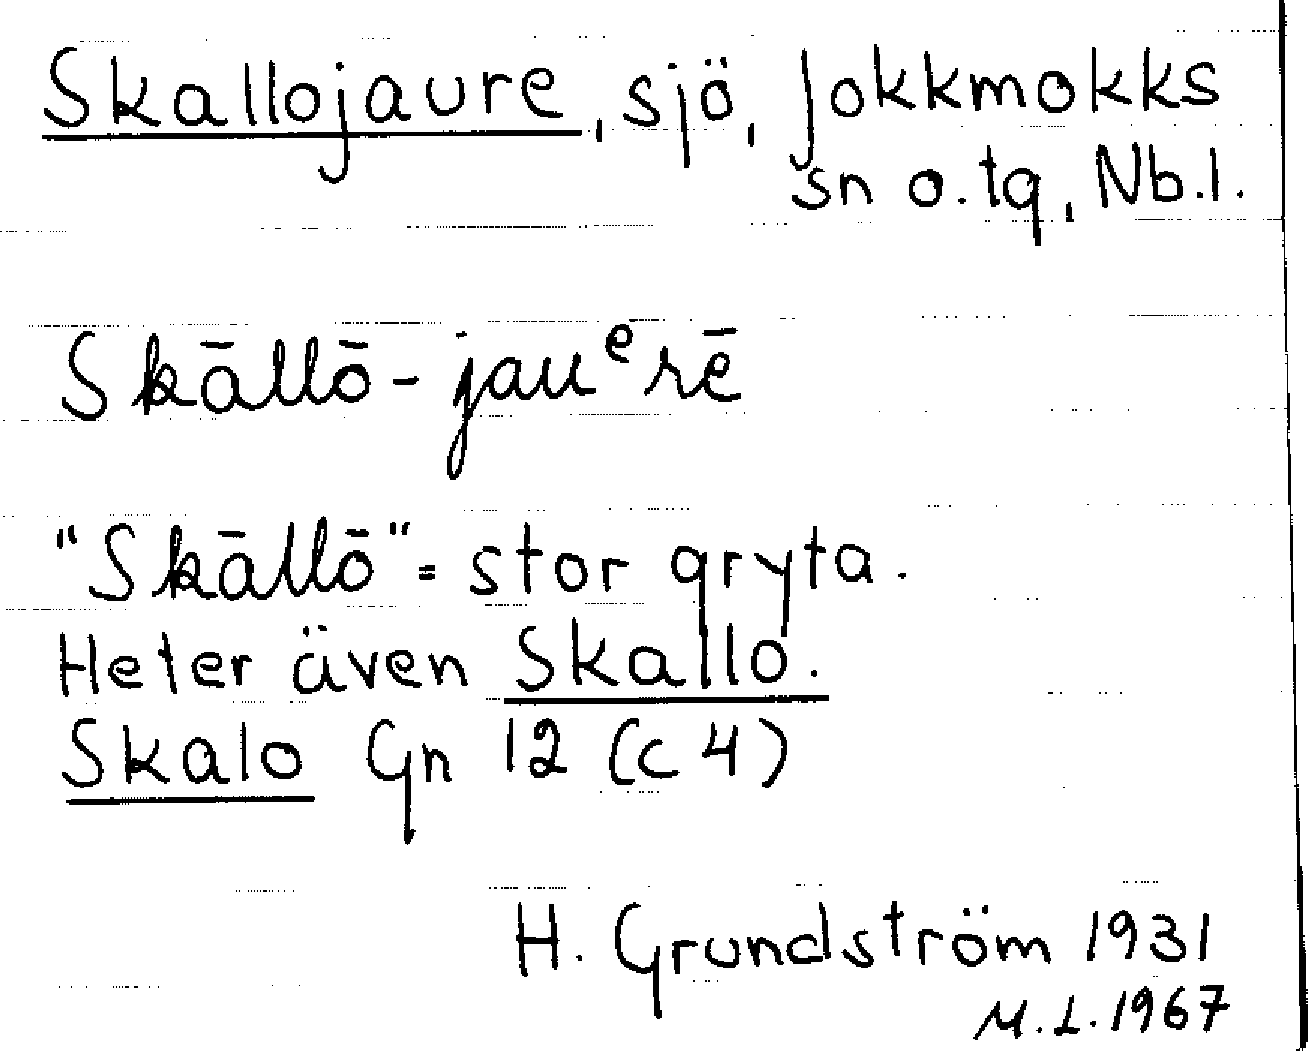 Skallojaure, sjö, Jokkmokks
sn o. tg, Nb. l.
Skāllō-jauᵉrē
"Skāllō" = stor gryta.
Heter även Skallo.
Skalo Gn 12 (c 4)
H. Grundström 1931
M. L. 1967